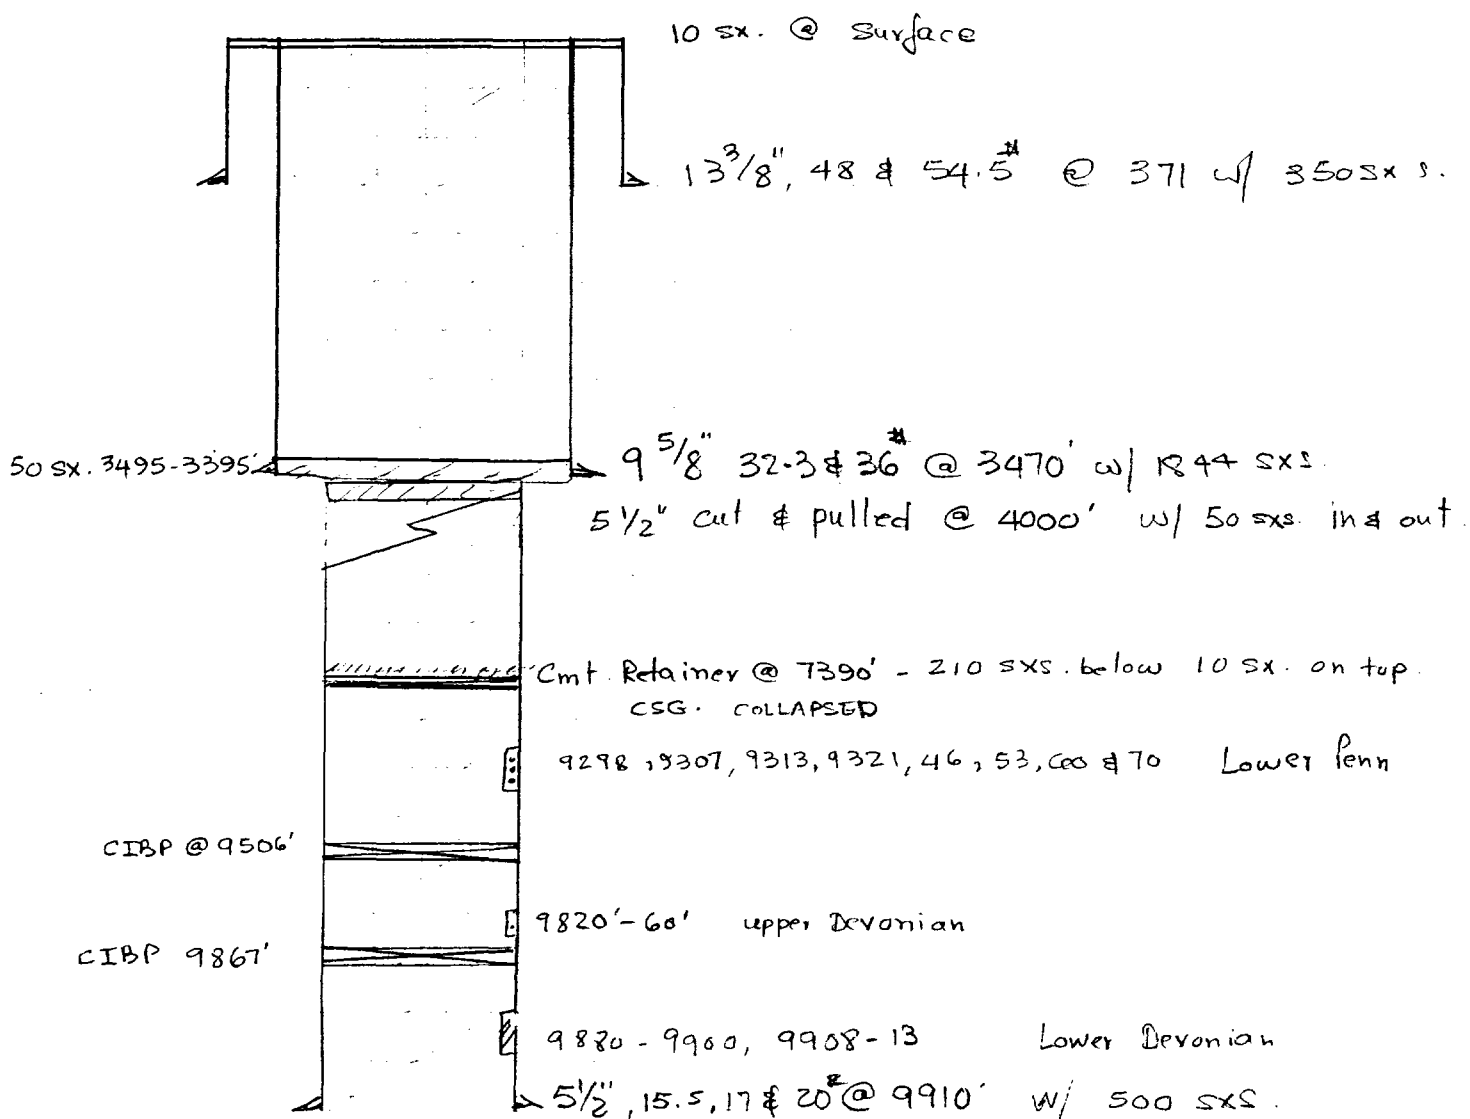 10 sx. @ Surface
13 3/8", 48 & 54.5# @ 371 w/ 350 sxs.
50 sx. 3495-3395'
9 5/8" 32.3 & 36# @ 3470' w/ 1844 sxs.
5 1/2" cut & pulled @ 4000' w/ 50 sxs. in & out.
Cmt. Retainer @ 7390' - 210 sxs. below 10 sx. on top.
CSG. COLLAPSED
9298, 9307, 9313, 9321, 46, 53, 60 & 70 Lower Penn
CIBP @ 9506'
9820'-60' upper Devonian
CIBP 9867'
9880 - 9900, 9908-13 Lower Devonian
5 1/2", 15.5, 17 & 20# @ 9910' w/ 500 sxs.